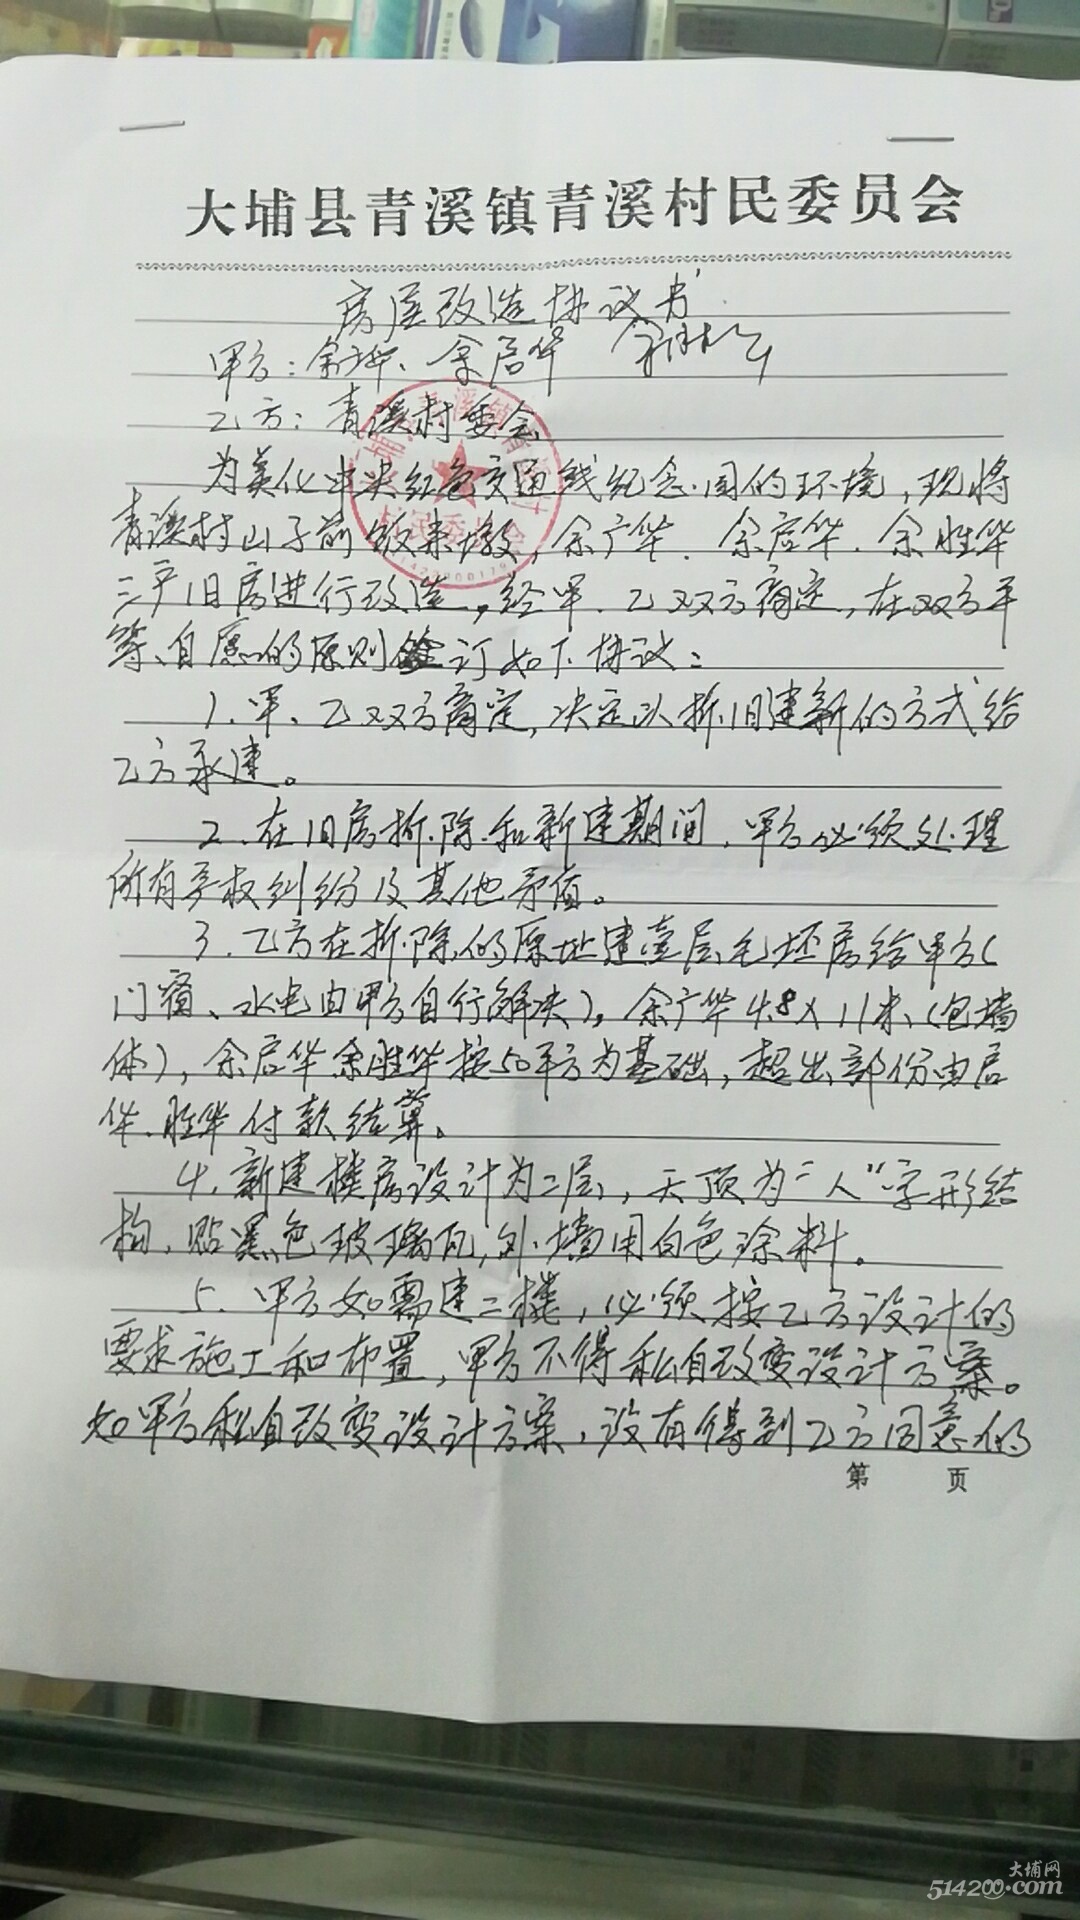 大埔县青溪镇青溪村民委员会
房屋改造协议书
甲方：余广华、余启华
乙方：青溪村委会
为美化中央红色交通线纪念园的环境，现将
青溪村山子前 余广华、余启华、余胜华
三户旧房进行改造，经甲、乙双方商定，在双方平
等、自愿的原则签订如下协议：
1、甲、乙双方商定，决定以拆旧建新的方式给
乙方承建。
2、在旧房拆除和新建期间，甲方必须处理
所有产权纠纷及其他矛盾。
3、乙方在拆除的原址建壹层毛坯房给甲方（
门窗、水电由甲方自行解决），余广华4.8×11米（包墙
体），余启华余胜华按50平方为基础，超出部份由启
华、胜华付款结算。
4、新建楼房设计为二层，天顶为“人”字形结
构，贴黑色玻璃瓦，外墙用白色涂料。
5、甲方如需建二楼，必须按乙方设计的
要求施工和布置，甲方不得私自改变设计方案。
如甲方私自改变设计方案，没有得到乙方同意的
第 页
大埔网
514200.com